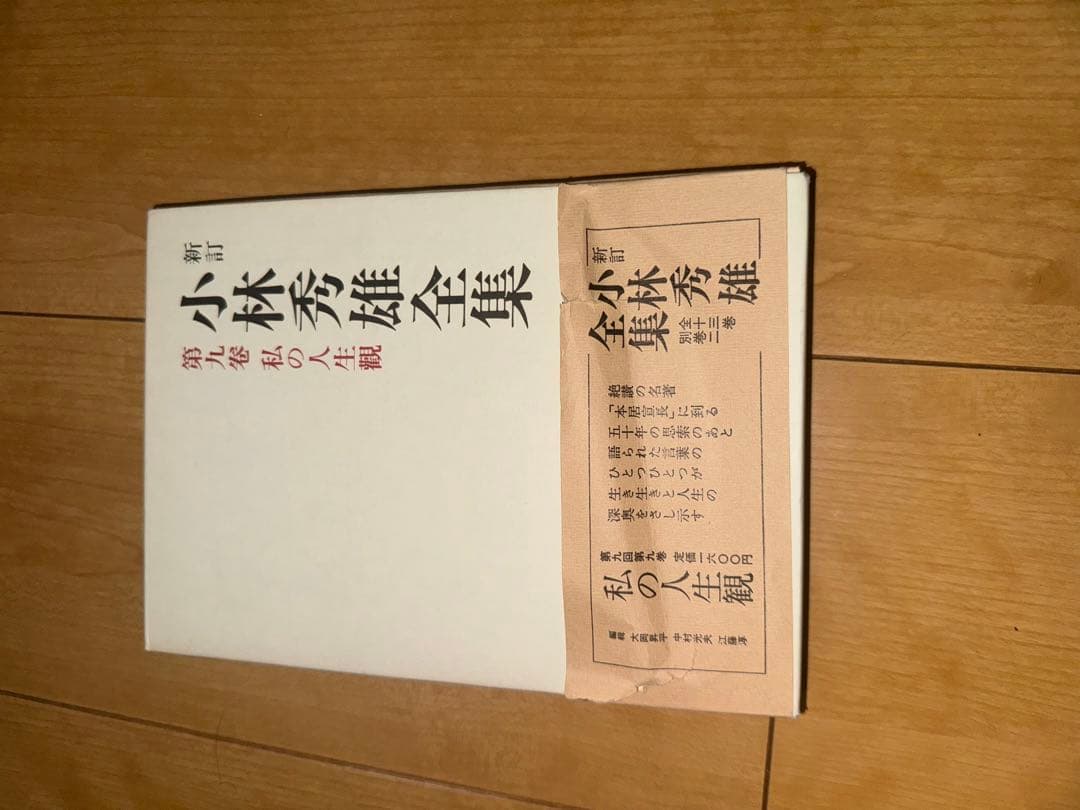 新訂
小林秀雄全集
第九巻 私の人生觀
新訂
小林秀雄
全集
全十三巻
別巻二
絶讃の名著
「本居宣長」に到る
五十年の思索のあと
語られた言葉の
ひとつひとつが
生き生きと人生の
深奥をさし示す
第九回第九巻 定価一六〇〇円
私の人生観
編輯 大岡昇平 中村光夫 江藤淳